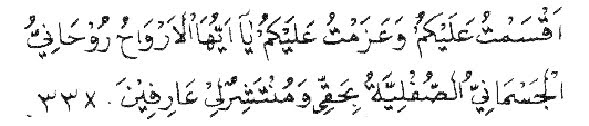 اَقْسَمْتُ عَلَيْكُمْ وَعَزَمْتُ عَلَيْكُمْ يَا اَيُّهَا الْاَرْوَاحُ رُوْحَانِيُّ
الْجَسْمَانِيُّ الصُّفْلِيَّةُ بِحَقِّى وَمُنْتَشِرُلِى عَارِفِيْنَ . ٣٣٨ .